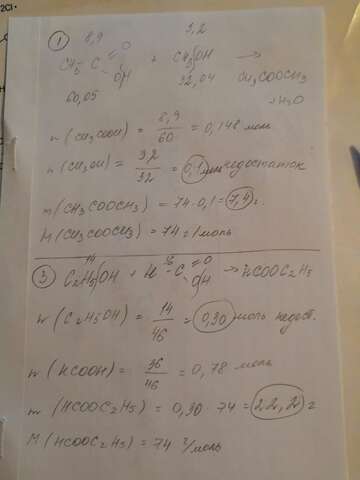 2Cl·
8,9 3,2
① CH₃ - C =O OH + CH₃OH → CH₃COOCH₃
60,05 32,04 + H₂O
n (CH₃COOH) = 8,9/60 = 0,148 моль
n (CH₃OH) = 3,2/32 = 0,1 моль недостаток
m (CH₃COOCH₃) = 74·0,1 = 7,4 г.
M (CH₃COOCH₃) = 74 г/моль
14 36
③ C₂H₅OH + H - C =O OH → HCOOC₂H₅
n (C₂H₅OH) = 14/46 = 0,30 моль недост.
n (HCOOH) = 36/46 = 0,78 моль
m (HCOOC₂H₅) = 0,30·74 = 22,2 г
M (HCOOC₂H₅) = 74 г/моль